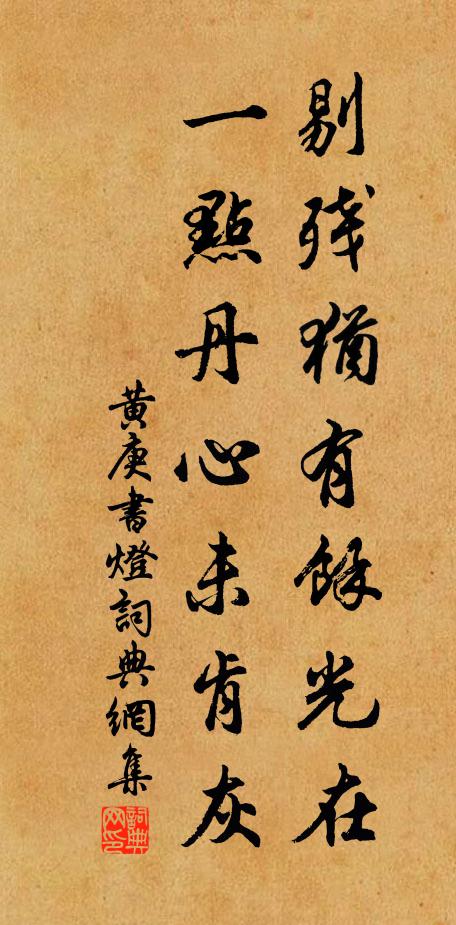 剔残猶有餘光在
一點丹心未肯灰
黄庚書燈詞典網集
詞典网印